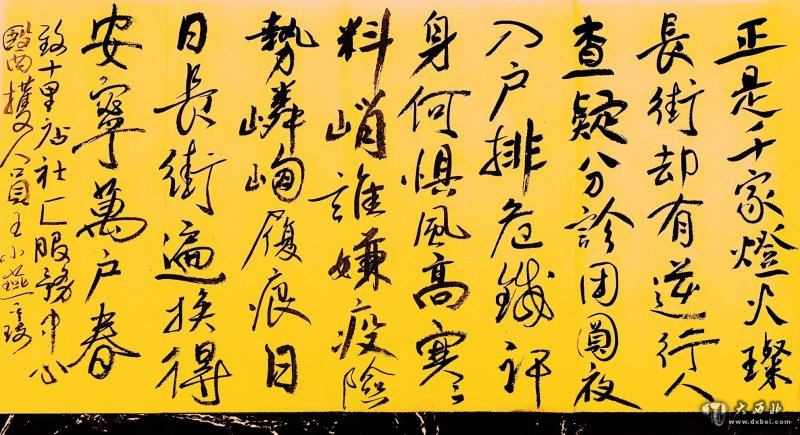 正是千家燈火璨
長街却有逆行人
查疑分診团圓夜
入户排危鐵
身何惧風高寒
料峭誰嫌疫險
勢嶙峋履痕日
日長街遍换得
安寧萬户春
致十里店社区服務中心
醫護人員王小燕
大西北
www.dxbei.com